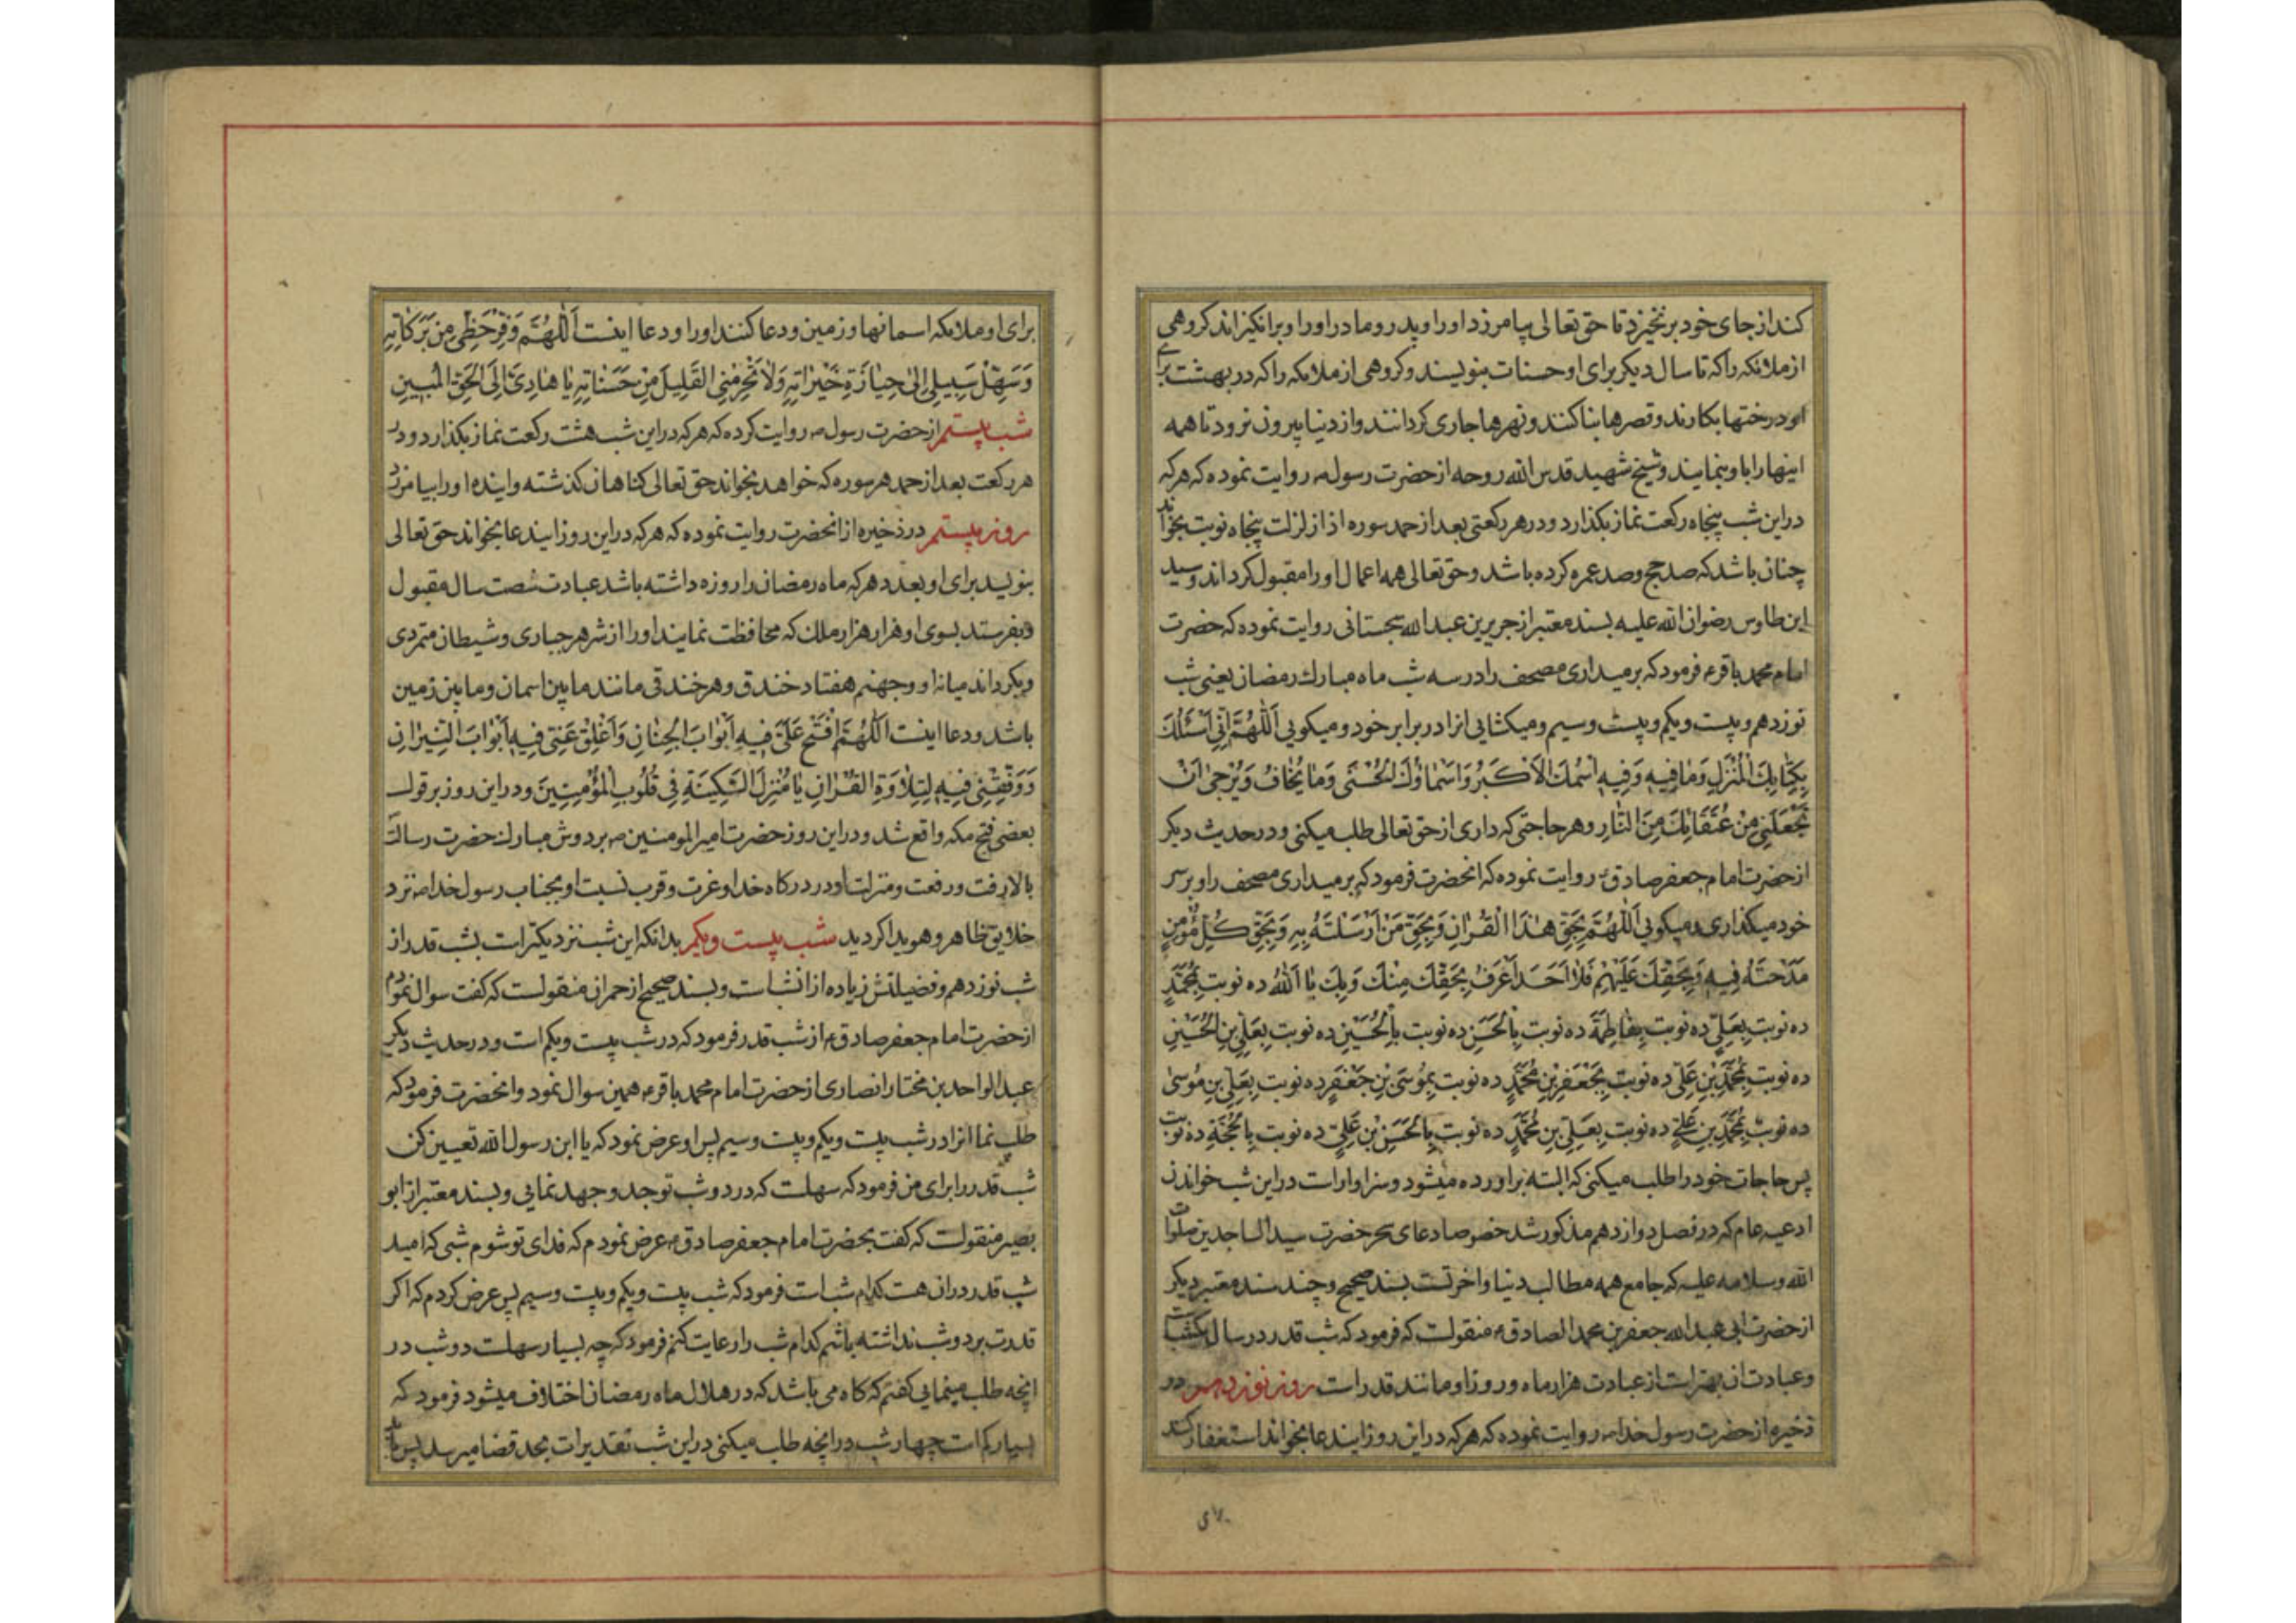 کند از جای خود برنخیزد تا حق تعالی بیامرزد او را و پدر و مادر او را و برانکیزاند کروهی
از ملائکه را که تا سال دیکر برای او حسنات بنویسند و کروهی از ملائکه را که در بهشت برای
او درختها بکارند و قصرها بنا کنند و نهرها جاری کردانند و از دنیا بیرون نرود تا همه
اینها را باو بنمایند و شیخ شهید قدس الله روحه از حضرت رسول ص روایت نموده که هر که
در این شب پنجاه رکعت نماز بکذارد و در هر رکعتی بعد از حمد سوره اذا زلزلت پنجاه نوبت بخواند
چنان باشد که صد حج و صد عمره کرده باشد و حق تعالی همه اعمال او را مقبول کرداند و سید
ابن طاوس رضوان الله علیه بسند معتبر از جریر بن عبد الله سجستانی روایت نموده که حضرت
امام محمد باقر ع فرمود که برمیداری مصحف را در سه شب ماه مبارک رمضان یعنی شب
نوزدهم و بیست و یکم و بیست و سیم و میکشایی انرا در برابر خود و میکویی اَللّٰهُمَّ اِنّی اَسْئَلُكَ
بِكِتٰابِكَ الْمُنْزَلِ وَمٰا فیهِ وَفیهِ اسْمُكَ الْاَكْبَرُ وَاَسْمٰاؤُكَ الْحُسْنٰی وَمٰا یُخٰافُ وَیُرْجٰی اَنْ
تَجْعَلَنی مِنْ عُتَقٰائِكَ مِنَ النّٰارِ و هر حاجتی که داری از حق تعالی طلب میکنی و در حدیث دیکر
از حضرت امام جعفر صادق ع روایت نموده که انحضرت فرمود که برمیداری مصحف را و بر سر
خود میکذاری و میکویی اَللّٰهُمَّ بِحَقِّ هٰذَا الْقُرْاٰنِ وَبِحَقِّ مَنْ اَرْسَلْتَهُ بِهِ وَبِحَقِّ كُلِّ مُؤْمِنٍ
مَدَحْتَهُ فیهِ وَبِحَقِّكَ عَلَیْهِمْ فَلٰا اَحَدَ اَعْرَفُ بِحَقِّكَ مِنْكَ وَبِكَ یٰا اَللّٰهُ ده نوبت بِمُحَمَّدٍ
ده نوبت بِعَلِیٍّ ده نوبت بِفٰاطِمَةَ ده نوبت بِالْحَسَنِ ده نوبت بِالْحُسَیْنِ ده نوبت بِعَلِیِّ بْنِ الْحُسَیْنِ
ده نوبت بِمُحَمَّدِ بْنِ عَلِیٍّ ده نوبت بِجَعْفَرِ بْنِ مُحَمَّدٍ ده نوبت بِمُوسَی بْنِ جَعْفَرٍ ده نوبت بِعَلِیِّ بْنِ مُوسٰی
ده نوبت بِمُحَمَّدِ بْنِ عَلِیٍّ ده نوبت بِعَلِیِّ بْنِ مُحَمَّدٍ ده نوبت بِالْحَسَنِ بْنِ عَلِیٍّ ده نوبت بِالْحُجَّةِ ده نوبت
پس حاجات خود را طلب میکنی که البته براورده میشود و سزاوار است در این شب خواندن
ادعیه عام که در فصل دوازدهم مذکور شد خصوصا دعای سحر حضرت سید الساجدین صلوات
الله وسلامه علیه که جامع همه مطالب دنیا و اخرتست بسند صحیح و چند سند معتبر دیکر
از حضرت ابی عبد الله جعفر بن محمد الصادق ع منقولست که فرمود که شب قدر در سال یکشب است
و عبادت ان بهتر است از عبادت هزار ماه و روز او مانند قدر است روز نوزدهم در
ذخیره از حضرت رسول خدا ص روایت نموده که هر که در این روز ایندعا بخواند استغفار کنند
برای او ملائکه اسمانها و زمین و دعا کنند او را و دعا اینست اَللّٰهُمَّ وَفِّرْ حَظّی مِنْ بَرَكٰاتِهِ
وَسَهِّلْ سَبیلی اِلیٰ حِیٰازَةِ خَیْرٰاتِهِ وَلٰا تَحْرِمْنِی الْقَلیلَ مِنْ حَسَنٰاتِهِ یٰا هٰادِیَ اِلَی الْحَقِّ الْمُبینِ
شب بیستم از حضرت رسول ص روایت کرده که هر که در این شب هشت رکعت نماز بکذارد و در
هر رکعت بعد از حمد هر سوره که خواهد بخواند حق تعالی کناهان کذشته و اینده او را بیامرزد
روز بیستم در ذخیره از انحضرت روایت نموده که هر که در این روز ایندعا بخواند حق تعالی
بنویسد برای او بعدد هر که ماه رمضان را روزه داشته باشد عبادت شصت سال مقبول
و بفرستد بسوی او هزار هزار ملک که محافظت نمایند او را از شر هر جباری و شیطان متمردی
و بکرداند میانه او و جهنم هفتاد خندق و هر خندقی مانند ما بین اسمان و ما بین زمین
باشد و دعا اینست اَللّٰهُمَّ افْتَحْ عَلَیَّ فیهِ اَبْوٰابَ الْجِنٰانِ وَاَغْلِقْ عَنّی فیهِ اَبْوٰابَ النّیرٰانِ
وَوَفِّقْنی فیهِ لِتِلٰاوَةِ الْقُرْاٰنِ یٰا مُنْزِلَ السَّكینَةِ فی قُلُوبِ الْمُؤْمِنینَ و در این روز بر قول
بعضی فتح مکه واقع شد و در این روز حضرت امیرالمومنین ص بر دوش مبارک حضرت رسالت
بالا رفت و رفعت و منزلت او در درکاه خدا و عزت و قرب نسبت او بجناب رسول خدا ص نزد
خلایق ظاهر و هویدا کردید شب بیست و یکم بدانکه این شب نزدیکتر است بشب قدر از
شب نوزدهم و فضیلتش زیاده از انشبست و بسند صحیح از حمران منقولست که کفت سوال نمودم
از حضرت امام جعفر صادق ع از شب قدر فرمود که در شب بیست و یکم است و در حدیث دیکر
عبد الواحد بن مختار انصاری از حضرت امام محمد باقر ع همین سوال نمود و انحضرت فرمود که
طلب نما انرا در شب بیست و یکم و بیست و سیم پس او عرض نمود که یا ابن رسول الله تعیین کن
شب قدر را برای من فرمود که سهلست که در دو شب تو جد و جهد نمایی و بسند معتبر از ابو
بصیر منقولست که کفت بحضرت امام جعفر صادق ع عرض نمودم که فدای تو شوم شبی که امید
شب قدر در ان هست کدام شب است فرمود که شب بیست و یکم و بیست و سیم پس عرض کردم که اکر
قدرت بر دو شب نداشته باشم کدام شب را رعایت کنم فرمود که چه بسیار سهلست دو شب در
انچه طلب مینمایی کفتم که کاه می باشد که در هلال ماه رمضان اختلاف میشود فرمود که
بسیار کم است چهار شب در انچه طلب میکنی در این شب تقدیرات بحد قضا میرسد پس